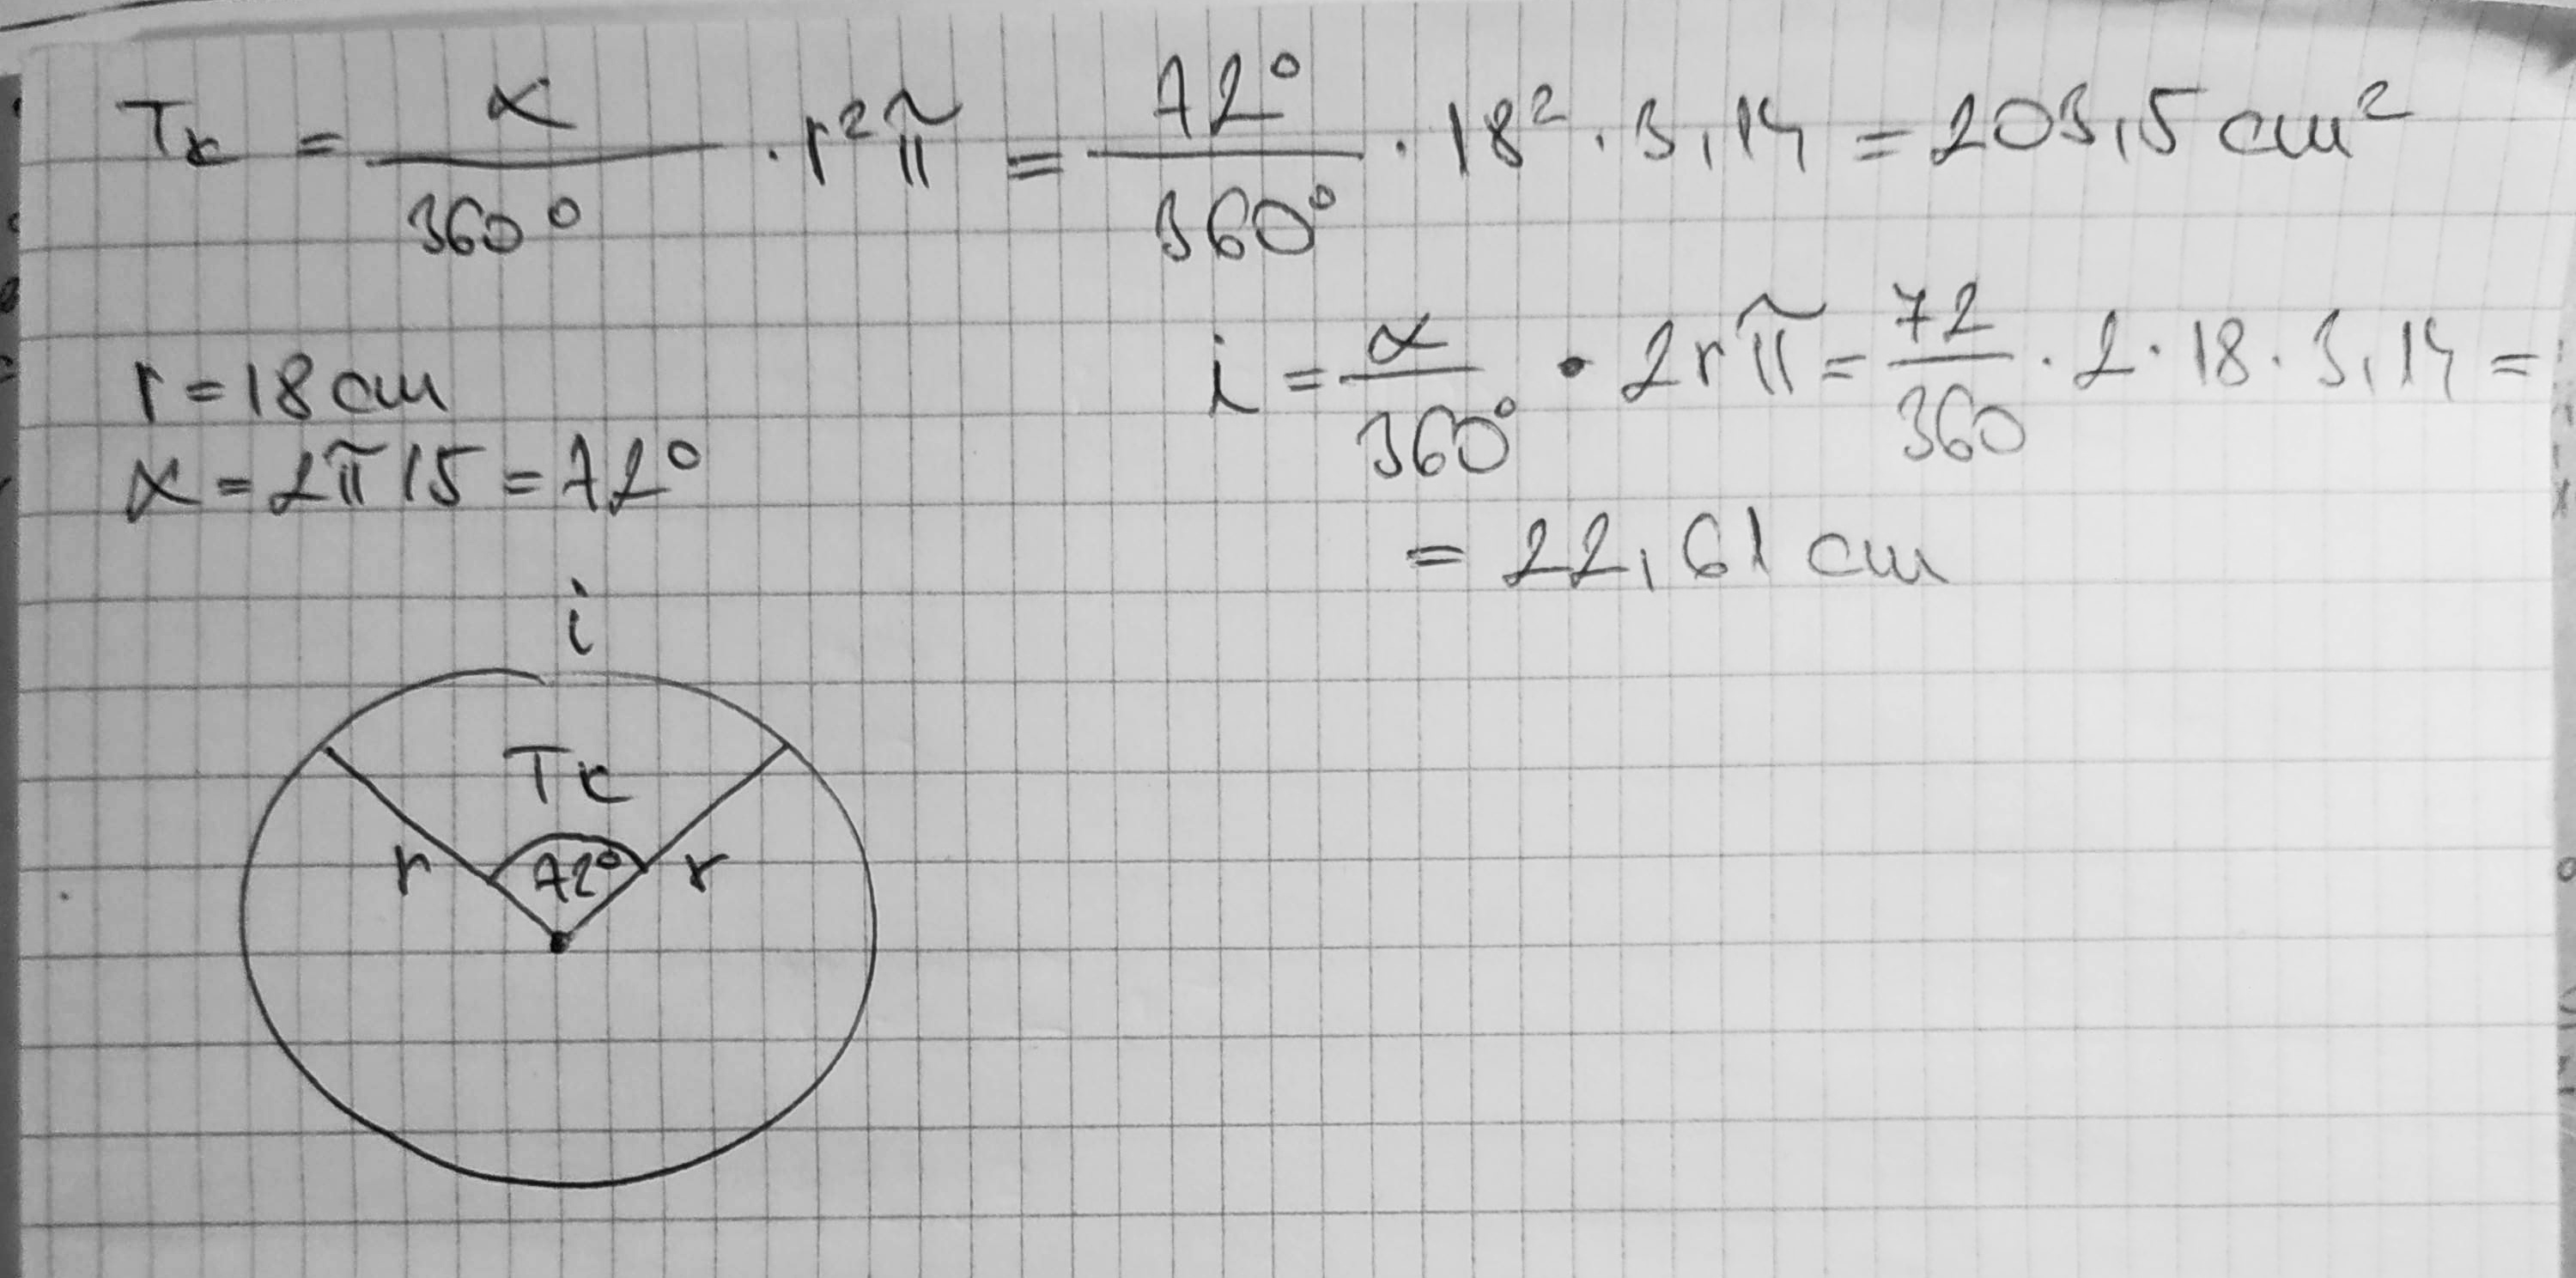 Tk = α/360° · r²π = 72°/360° · 18² · 3,14 = 203,5 cm²
r = 18 cm
α = 2π/5 = 72°
i = α/360° · 2rπ = 72/360 · 2 · 18 · 3,14 =
= 22,61 cm
i
Tk
r 72° r